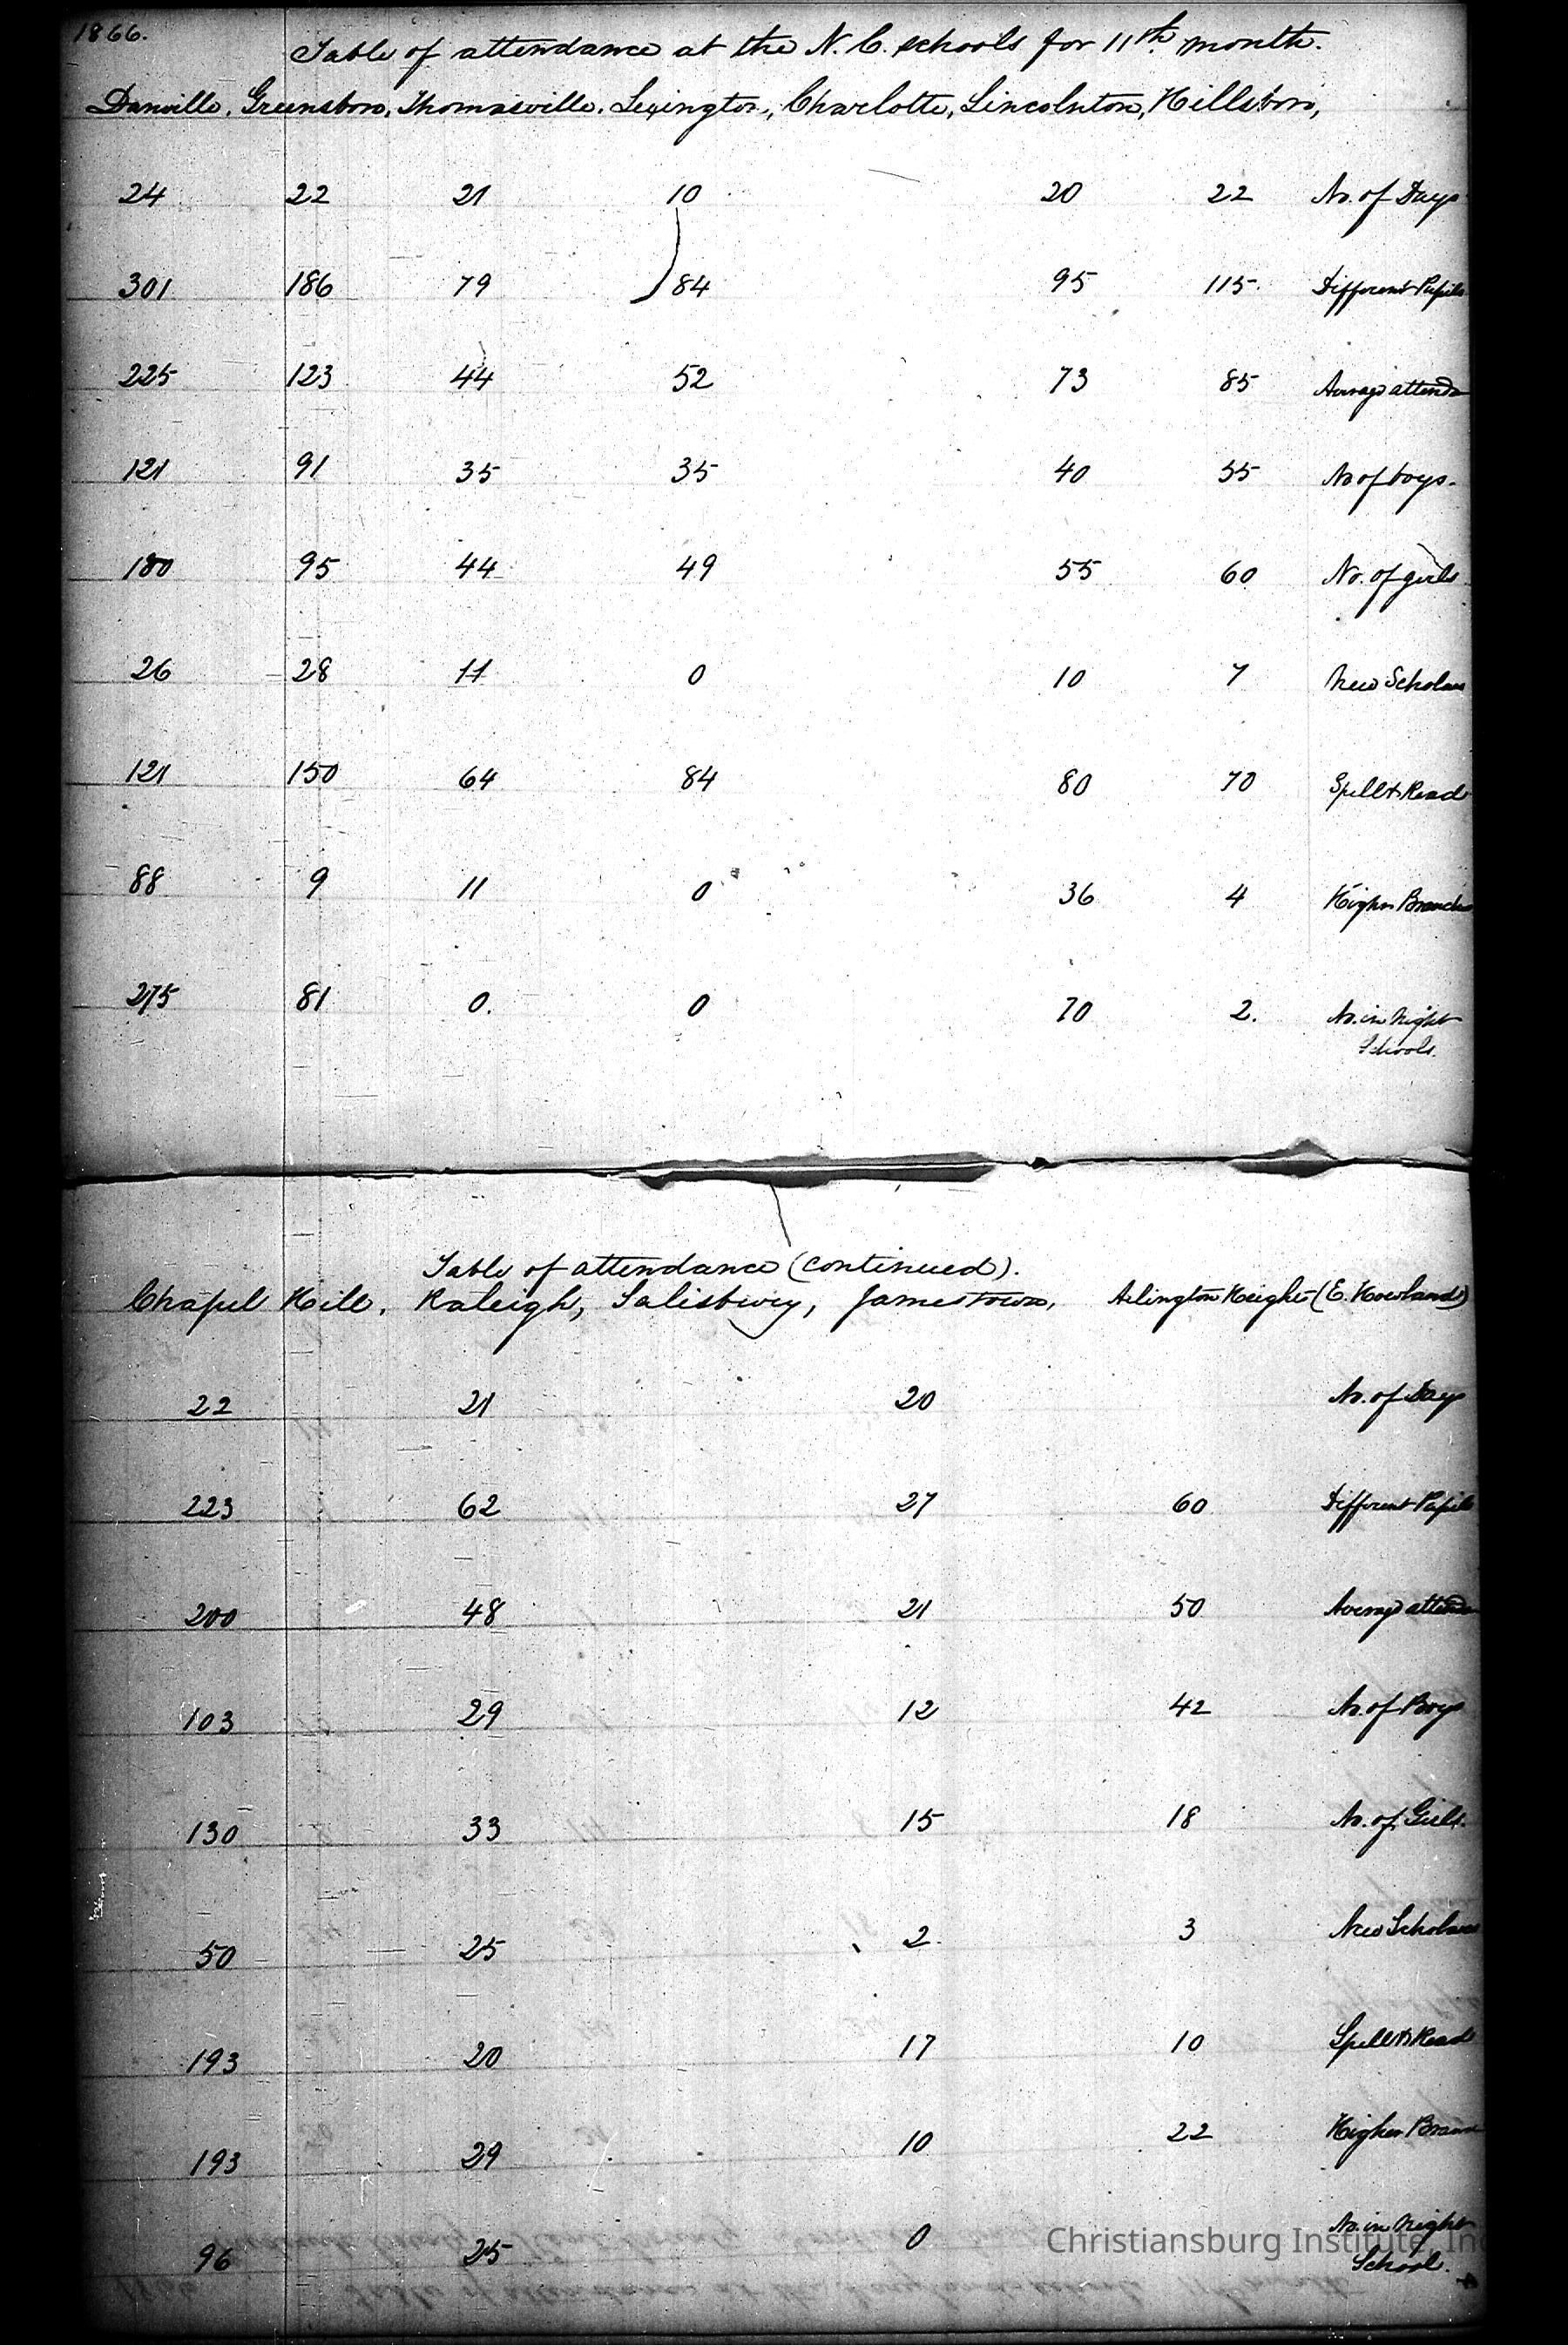 1866.
Table of attendance at the N. C. schools for 11th month.
Danville, Greensboro, Thomasville, Lexington, Charlotte, Lincolnton, Hillsboro,
24 22 21 10 20 22 No. of Days
301 186 79 84 95 115. Different Pupils
225 123 44 52 73 85 Average attenda
121 91 35 35 40 55 No of boys.
180 95 44 49 55 60 No. of girls
26 28 11 0 10 7 New Scholars
121 150 64 84 80 70 Spell & Read
88 9 11 0 36 4 Higher Branches
275 81 0. 0 70 2. No. in Night
Schools.
Table of attendance (continued).
Chapel Hill, Raleigh, Salisbury, Jamestown, Arlington Height (E. Howland)
22 21 20 No. of Days
223 62 27 60 Different Pupils
200 48 21 50 Average attenda
103 29 12 42 No. of Boys
130 33 15 18 No. of Girls.
50 25 2 3 New Scholars
193 20 17 10 Spell & Read
193 29 10 22 Higher Bran
96 25 0 No. in Night
School.
Christiansburg Institute, Inc